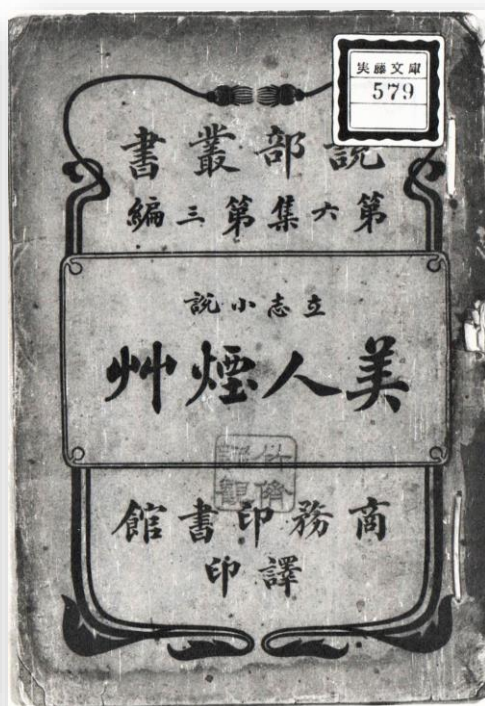 実藤文庫
579
説部叢書
第六集第三編
立志小説
美人煙艸
商務印書館
譯印